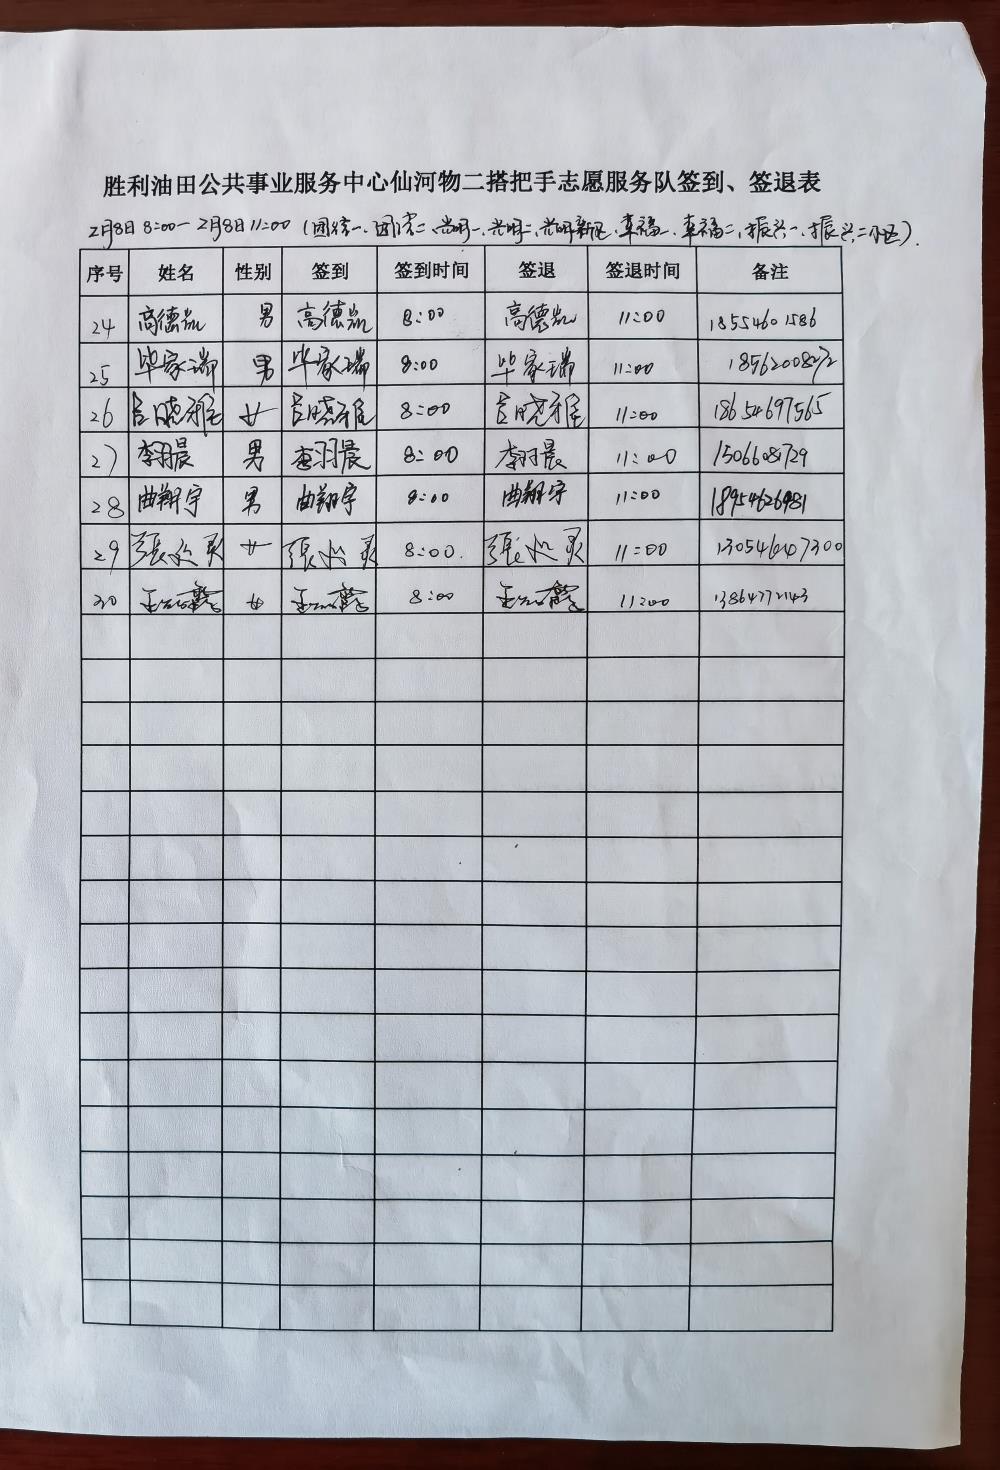 胜利油田公共事业服务中心仙河物二搭把手志愿服务队签到、签退表
2月8日 8:00-2月8日 11:00 (团结一、团结二、光明一、光明二、光明新区、幸福一、幸福二、振兴一、振兴二小区).
序号 姓名 性别 签到 签到时间 签退 签退时间 备注
24 高德凯 男 高德凯 8:00 高德凯 11:00 18554601586
25 毕家瑞 男 毕家瑞 8:00 毕家瑞 11:00 18562008272
26 吕晓雅 女 吕晓雅 8:00 吕晓雅 11:00 18654697565
27 李羽晨 男 李羽晨 8:00 李羽晨 11:00
28 曲翔宇 男 曲翔宇 8:00 曲翔宇 11:00 18954626981
29 女 8:00. 11:00 13054647300
30 女 8:00 11:00 13864772143